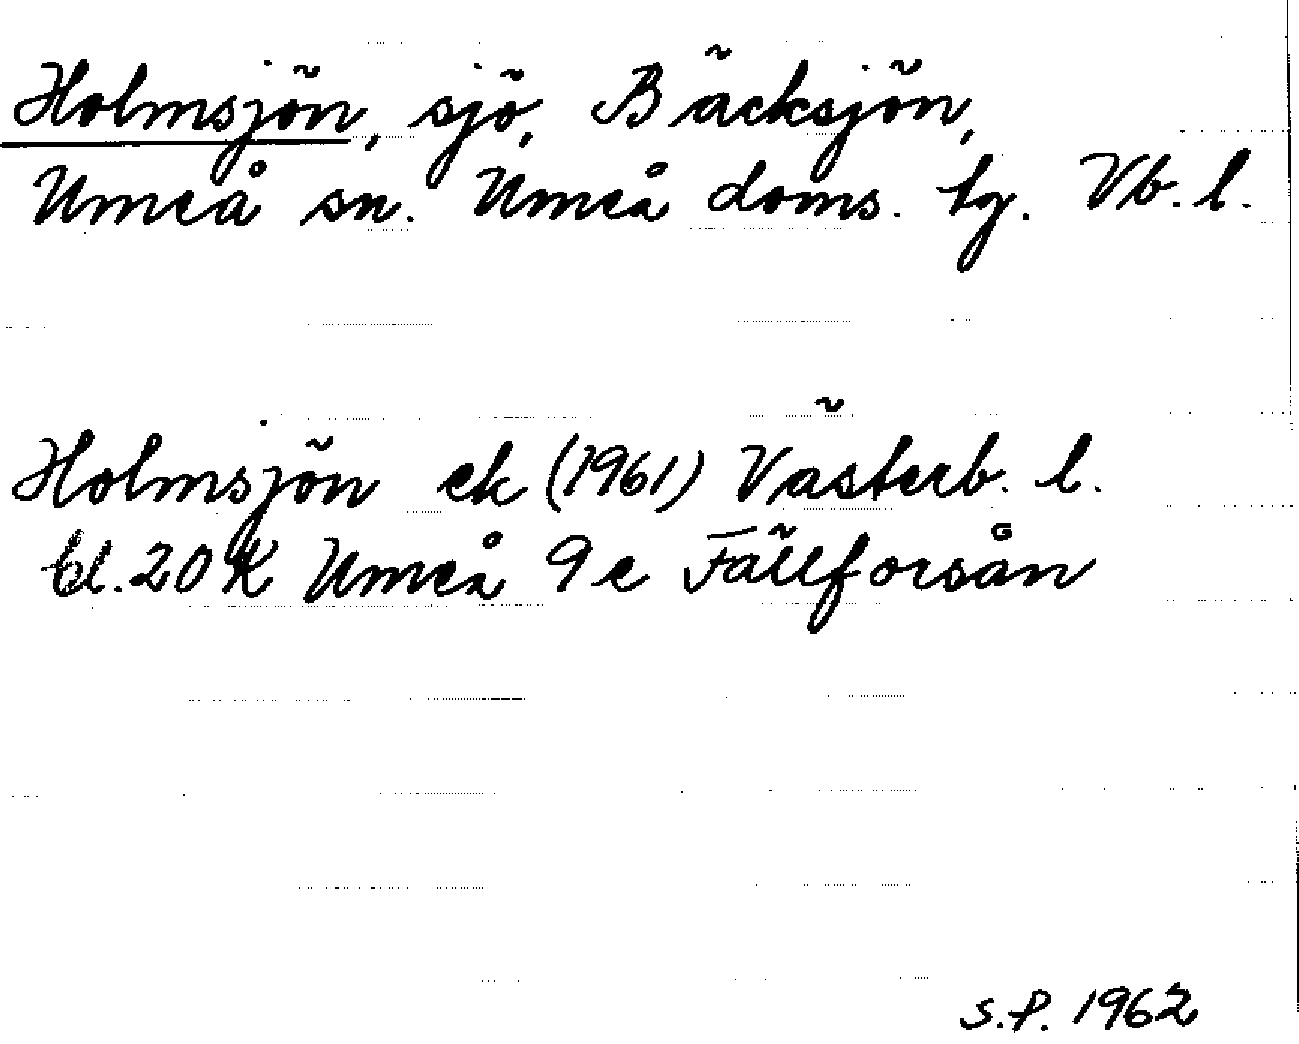 Holmsjön, sjö, Bäcksjön,
Umeå sn. Umeå doms. tg. Vb. l.
Holmsjön ek (1961) Västerb. l.
bl. 20 K Umeå 9 e Fällforsån
S.P. 1962